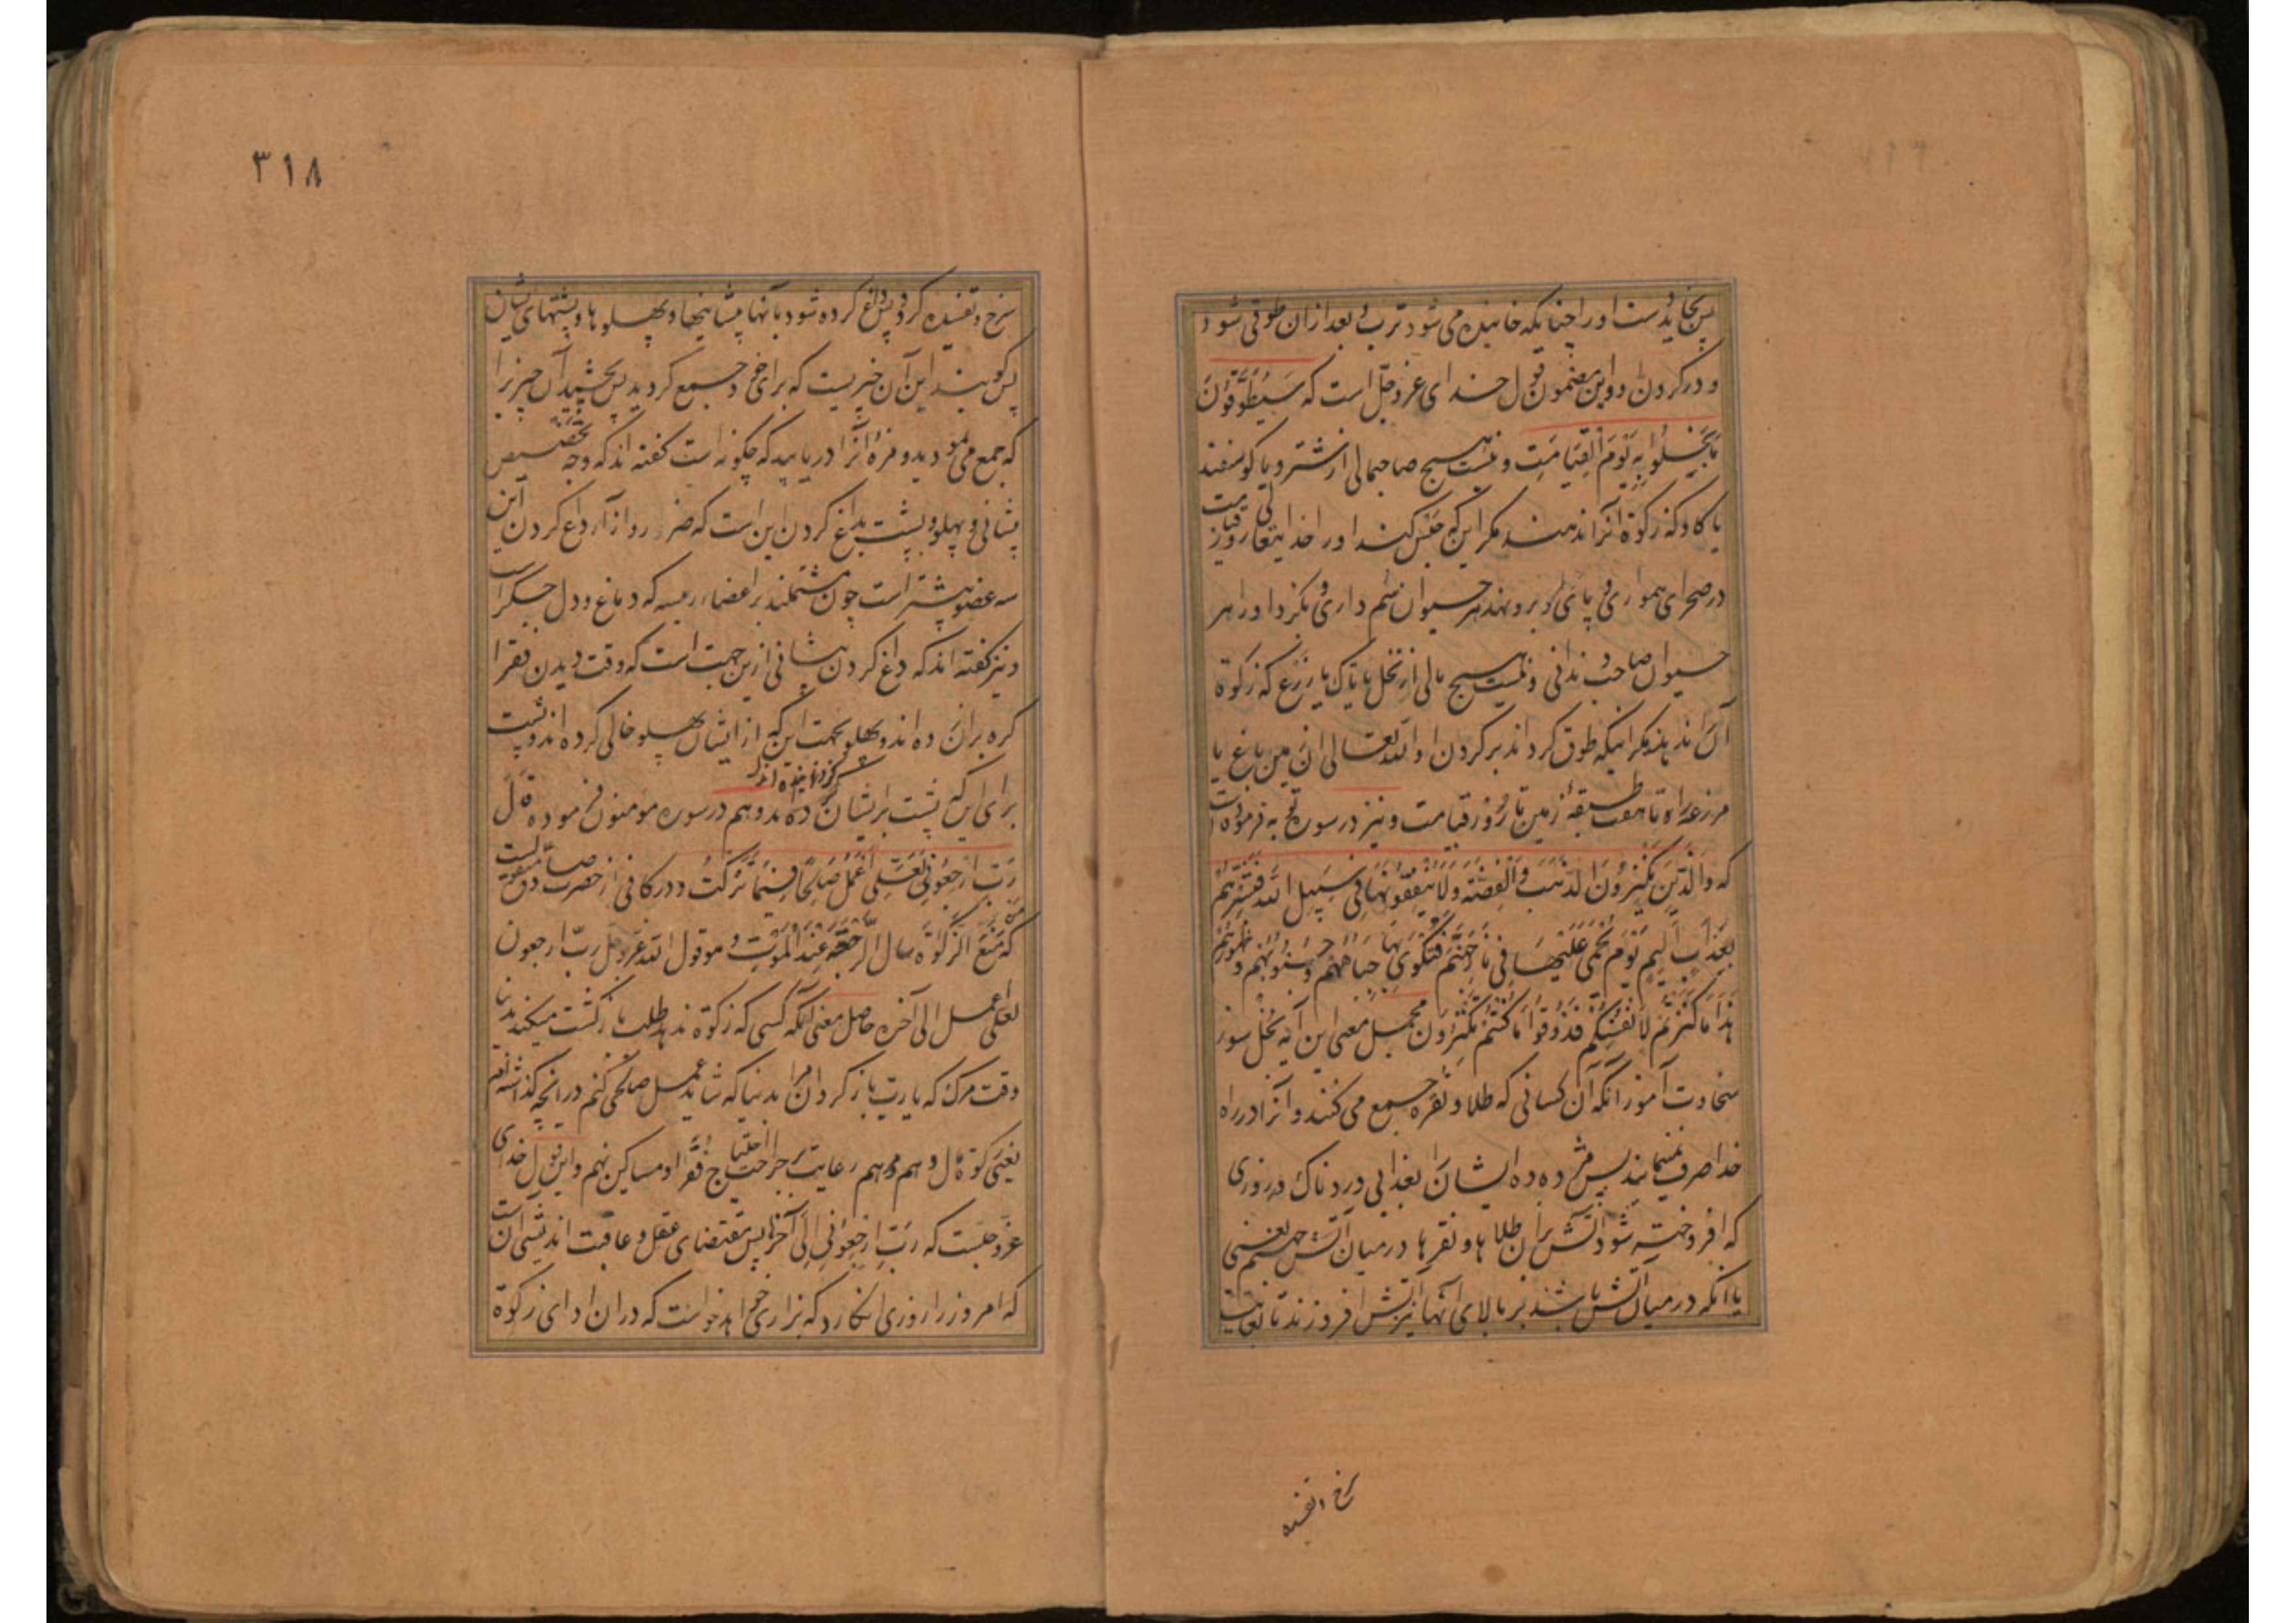 پس بخاید دست او را چنانکه خائیده می شود ترب و بعد از آن طوقی شود
در گردن او و این مضمون قول خدای عز و جل است که سَیُطَوَّقُونَ
مَا بَخِلُوا بِهِ یَوْمَ الْقِیَامَتِ و نیست هیچ صاحب مالی از شتر و یا گوسفند
یا گاو که زکوة آنرا ندهند مگر این که حبس کند او را خدایتعالی روز قیامت
در صحرای همواری و پای او برو نهد هر حیوان سُم داری و بگزد او را هر
حیوان صاحب دندانی و نیست هیچ مالی از نخل یا تاک یا زرع که زکوة
آن ندهند مگر اینکه طوق گرداند بر گردن او الله تعالی آن زمین باغ یا
مزرعه را تا هفت طبقهٔ زمین تا روز قیامت و نیز در سورهٔ توبه فرموده است
که وَالَّذِینَ یَکْنِزُونَ الذَّهَبَ وَالْفِضَّةَ وَلَا یُنْفِقُونَهَا فِی سَبِیلِ اللهِ فَبَشِّرْهُمْ
بِعَذَابٍ اَلِیمٍ یَوْمَ یُحْمَی عَلَیْهَا فِی نَارِ جَهَنَّمَ فَتُکْوَی بِهَا جِبَاهُهُمْ وَ جُنُوبُهُمْ وَ ظُهُورُهُمْ
هَذَا مَا کَنَزْتُمْ لِاَنْفُسِکُمْ فَذُوقُوا مَا کُنْتُمْ تَکْنِزُونَ مجمل معنی این آیه بخل سوز
سخاوت آموز آنکه آن کسانی که طلا و نقره جمع می کنند و آنرا در راه
خدا صرف نمینمایند پس مژده ده ایشان را بعذابی دردناک در روزی
که افروخته شود آتش بر آن طلاها و نقرها در میان آتش جهنم یعنی
با آنکه در میان آتش باشند بر بالای آنها نیز آتش افروزند تا بغایت
سرخ و تفسیده
۳۱۸
سرخ و تفسیده گردد پس داغ کرده شود بآنها پیشانیها و پهلوها و پشتهای ایشان
پس گویند این آن چیزیست که برای خود جمع کردید پس بچشید آن چیز را
که جمع می نمودید و مزهٔ آنرا دریابید که چگونه است گفته اند که وجه تخصیص
پیشانی و پهلو و پشت بداغ کردن این است که ضرر و آزار داغ کردن این
سه عضو بیشتر است چون مشتملند بر اعضاء رییسه که دماغ و دل و جگر است
و نیز گفته اند که داغ کردن پیشانی ازین جهت است که وقت دیدن فقرا
گره بر آن زده اند و پهلو بجهت این که از ایشان پهلو خالی کرده اند و پشت
گردانیده اند
برای این که پشت بر ایشان و هم در سوره مومنون فرموده قال
رَبِّ ارْجِعُونِی لَعَلِّی اَعْمَلُ صَالِحًا فِیمَا تَرَکْتُ و در کافی از حضرت صادق منقولست
که مَنْ مَنَعَ الزَّکوةَ سال الرَّجْعَةَ عِنْدَ الْمَوْتِ و هو قول الله عز و جل ربّ ارجعون
لعلی اعمل الی آخره حاصل معنی آنکه کسی که زکوة ندهد طلب بازگشت میکند بدنیا
وقت مرگ که یا رب باز گردان مرا بدنیا که شاید عمل صالحی کنم در آنچه گذاشته ام
یعنی زکوة مال و هم مرهم رعایت بر جراحت احتیاج فقرا و مساکین نهم و این قول خدای
عز و جلست که رَبِّ ارْجِعُونِی اِلَی آخر پس مقتضای عقل و عاقبت اندیشی آن است
که امروز را روزی انگارد که بزاری خواهد خواست که در آن ادای زکوة